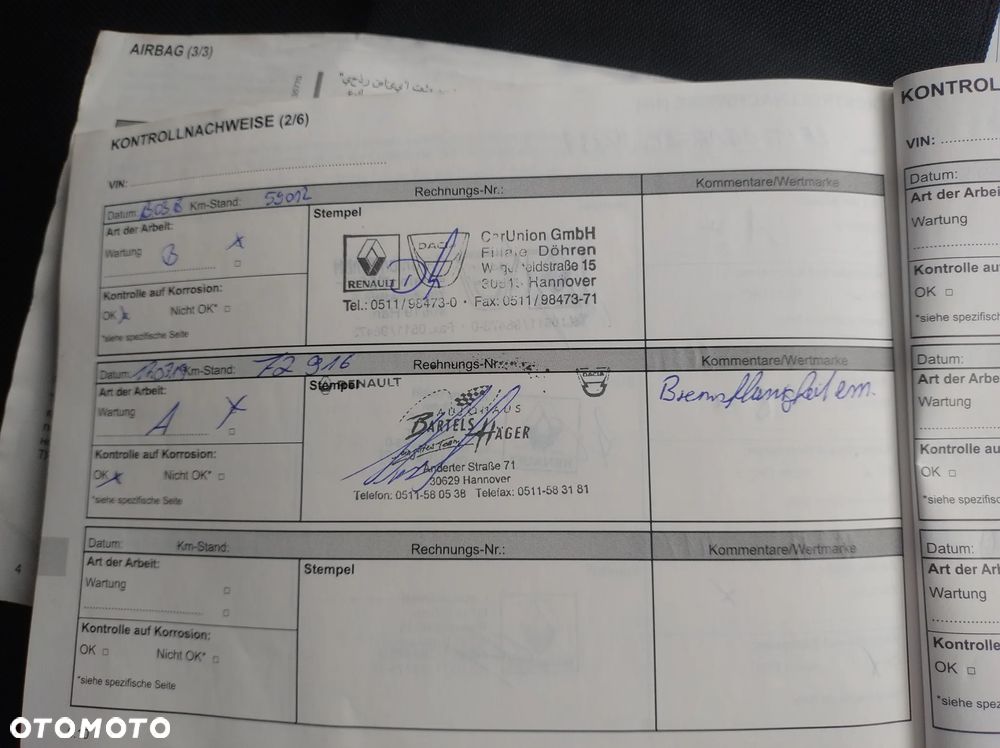 AIRBAG (3/3)
KONTROLLNACHWEISE (2/6)
VIN:
Datum: Km-Stand: 59012 Rechnungs-Nr.: Kommentare/Wertmarke
Art der Arbeit:
Wartung B x
Kontrolle auf Korrosion:
OK x Nicht OK*
*siehe spezifische Seite
Stempel
RENAULT DACIA
CarUnion GmbH
Filiale Döhren
15
Hannover
Tel.: 0511/98473-0 · Fax: 0511/98473-71
Datum: Km-Stand: 72 916 Rechnungs-Nr.: Kommentare/Wertmarke
Art der Arbeit:
Wartung A x
Kontrolle auf Korrosion:
OK x Nicht OK*
*siehe spezifische Seite
Stempel RENAULT DACIA
AUTOHAUS
BARTELS HÄGER
Anderter Straße 71
30629 Hannover
Telefon: 0511-58 05 38 Telefax: 0511-58 31 81
Datum: Km-Stand: Rechnungs-Nr.: Kommentare/Wertmarke
Art der Arbeit:
Wartung
Kontrolle auf Korrosion:
OK Nicht OK*
*siehe spezifische Seite
Stempel
4
KONTROL
VIN:
Datum:
Art der Arbei
Wartung
Kontrolle
OK
*siehe spezifisch
Datum:
Art der Arbe
Wartung
Kontrolle
OK
*siehe spezifisc
Datum:
Art der Arb
Wartung
Kontrolle
OK
*siehe spezi
OTOMOTO